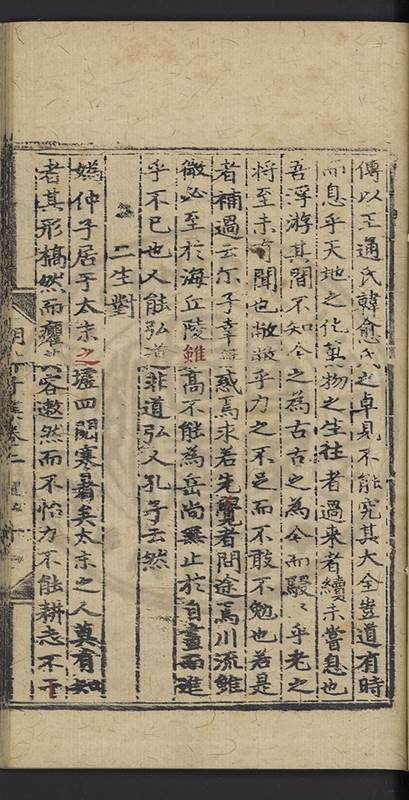 傳以王通氏韓愈氏之卓見不能究其大全豈道有時
而息乎天地之化萬物之生往者過來者續未嘗息也
吾浮游其間不知今之為古古之為今而駸〻乎老之
將至未有聞也敝敝乎力之不足而不敢不勉也若是
者補過云尔子幸無惑焉求若先覺者問途焉川流雖
微必至於海丘陵雖高不能為岳尚無止於自畫而進
乎不已也人能弘道非道弘人孔子云然
二生對
嬀仲子居于太末之墟四閱寒暑矣太末之人莫有知
者其形槁然而癯其容遬然而不怡力不能耕志不干
明 子集卷二